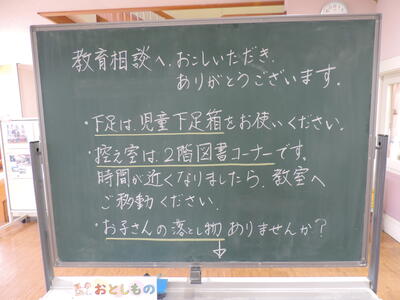 教育相談へ、おこしいただき、
ありがとうございます。
・下足は、児童下足箱をお使いください。
・控え室は、2階図書コーナーです。
時間が近くなりましたら、教室へ
ご移動ください。
・お子さんの落とし物ありませんか？
おとしもの